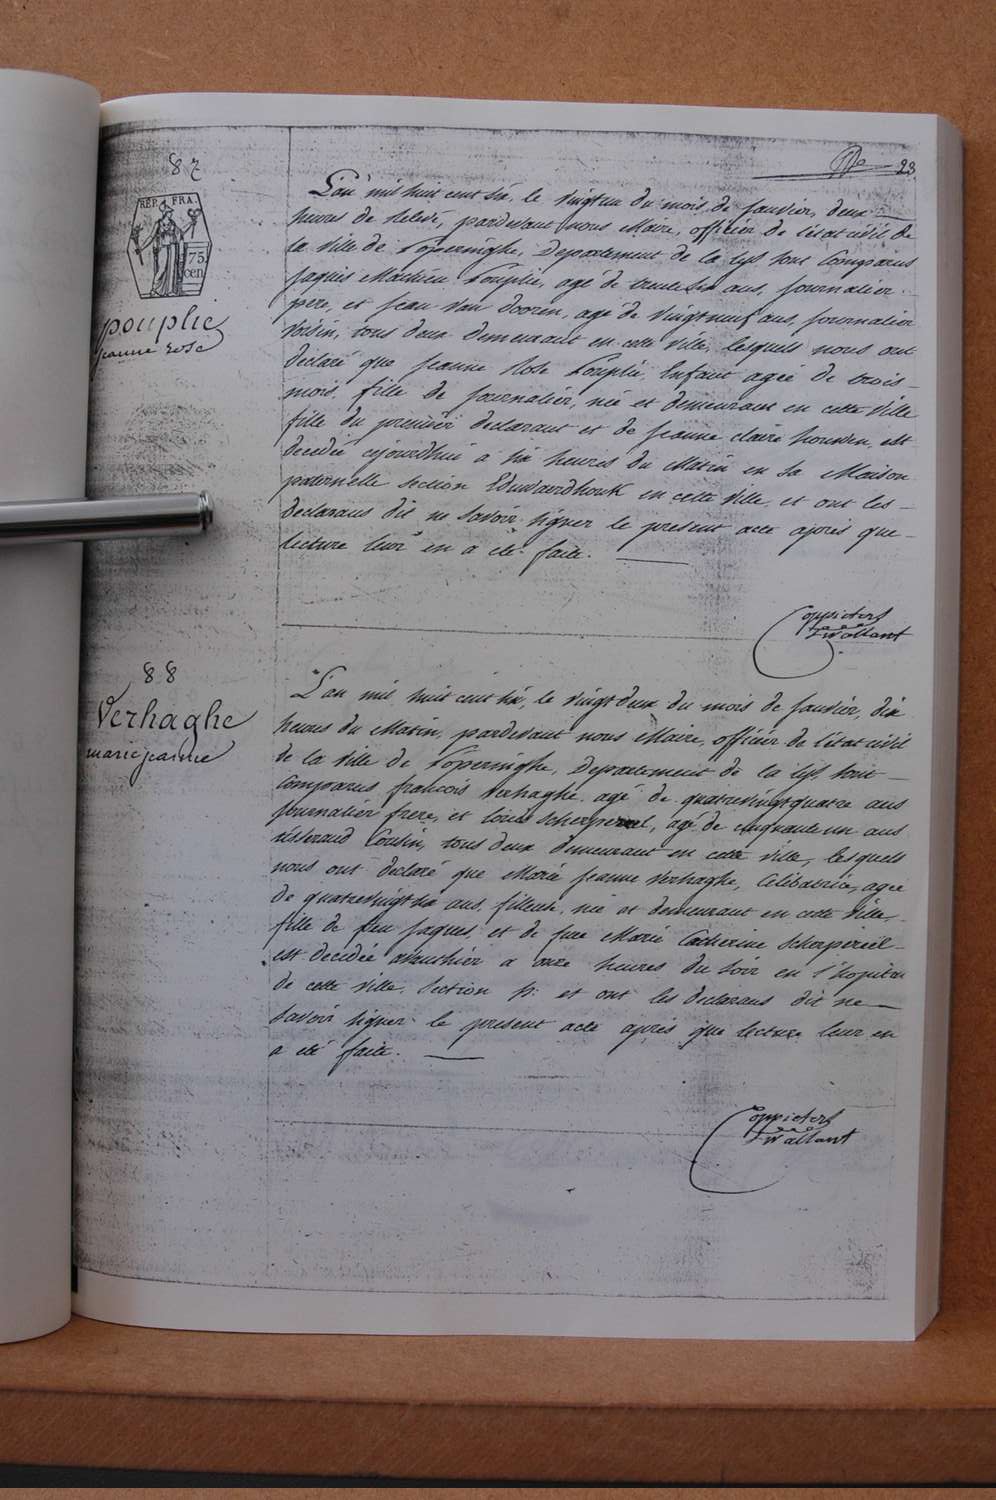 23
87
RÉP. FRA.
75
cen
pouplie
jeanne rose
L'an mil huit cent six, le vingtun du mois de Janvier, deux
heures de relevé, pardevant nous Maire, officier de l'etat civil de
la ville de Poperinghe, Departement de la Lys sont Comparus
Jaques Mathieu Pouplie, agé de trentesix ans, journalier
pere, et Jean Van Dooren, agé de vingtneuf ans, journalier
voisin, tous deux demeurant en cette ville, lesquels nous ont
declaré que Jeanne Rose Pouplie, Enfant ageé de trois
mois, fille de journalier, née et demeurant en cette ville
fille du premier declarant et de Jeanne Claire houwen, est
decedée cejourdhui a six heures du Matin en sa Maison
paternelle section Edewaerdhouk en cette ville, et ont les
declarans dit ne savoir signer le present acte aprés que
lecture leur en a été faite.
Coppieters
T'Wallant
88
Verhaghe
marie jeanne
L'an mil huit cent six, le vingt deux du mois de Janvier, dix
heures du Matin, pardevant nous Maire, officier de l'etat civil
de la ville de Poperinghe, Departement de la Lys sont
Comparus francois Verhaghe, agé de quatrevingtquatre ans
journalier frere, et Louis Scherpereel, agé de cinquante un ans
tisserand Cousin, tous deux demeurant en cette ville, lesquels
nous ont declaré que Marie Jeanne Verhaghe, Celibatrice, agee
de quatrevingt six ans, fileuse, née et demeurant en cette ville,
fille de feu Jaques, et de feue Marie Catherine Scherpereel
est decedée avanthier a onze heures du soir en l'hopital
de cette ville, Section et ont les declarans dit ne
savoir signer le present acte aprés que lecture leur en
a été faite.
Coppieters
T'Wallant